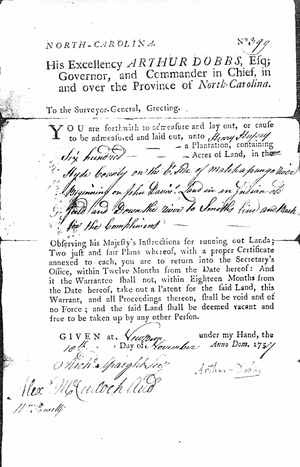 NORTH-CAROLINA. No 399
His Excellency ARTHUR DOBBS, Esq;
Governor, and Commander in Chief, in
and over the Province of North-Carolina.
To the Surveyor-General, Greeting.
YOU are forthwith to admeasure and lay out, or cause
to be admeasured and laid out, unto Henry
a Plantation, containing
Six hundred Acres of Land, in
Hyde County on the Side of
Beginning on John Land
and Down the River to line and Back
for the Compliment
Observing his Majesty's Instructions for running out Lands;
Two just and fair Plans whereof, with a proper Certificate
annexed to each, you are to return into the Secretary's
Office, within Twelve Months from the Date hereof: And
if the Warrantee shall not, within Eighteen Months from
the Date hereof, take out a Patent for the said Land, this
Warrant, and all Proceedings thereon, shall be void and of
no Force; and the said Land shall be deemed vacant and
free to be taken up by any other Person.
GIVEN at under my Hand, the
Day of November Anno Dom. 175
Arthur Dobbs
Richd Spaight Sec
Alex McCulloch Aud
Wm